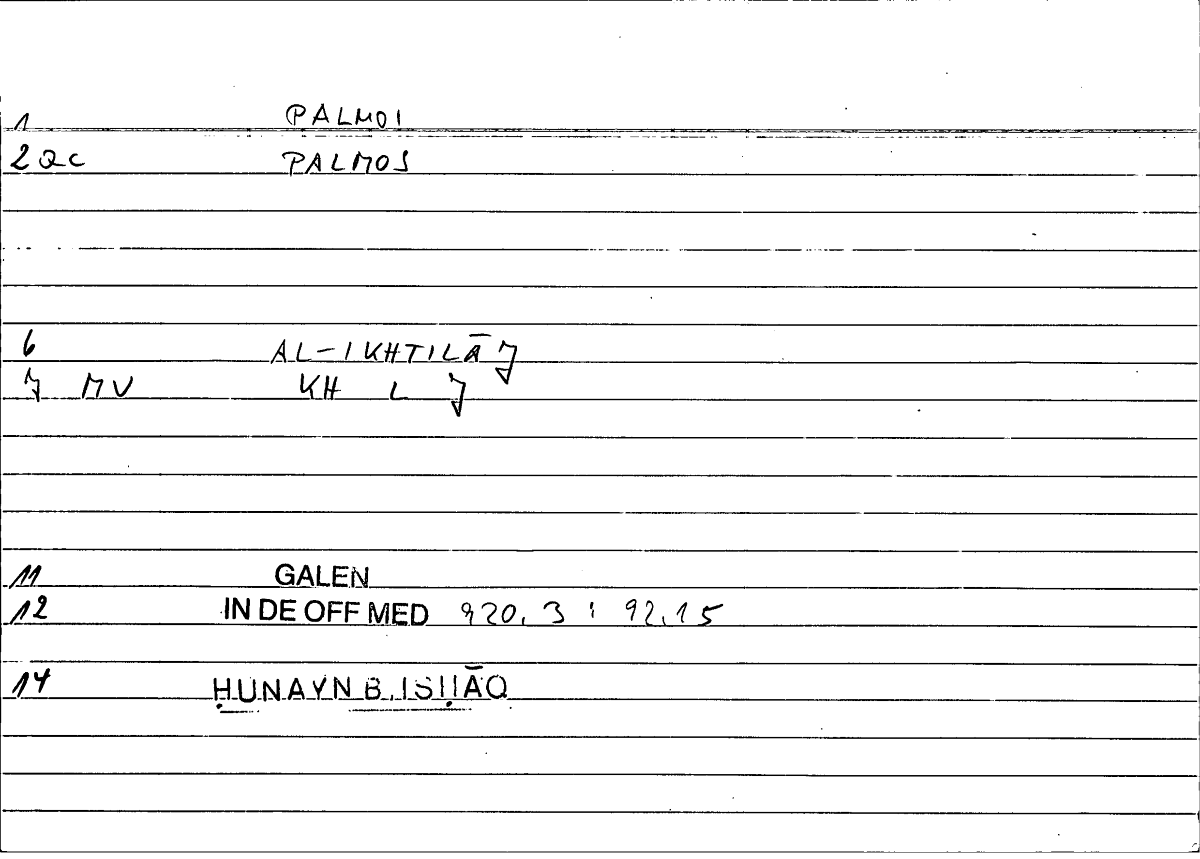 1 PALMOI
2 QC PALMOS
6 AL-IKHTILĀJ
7 MV KH L J
11 GALEN
12 IN DE OFF MED 920,3 : 92,15
14 ḤUNAYN B. ISḤĀQ